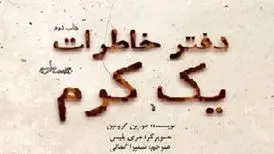 چاپ دوم
دفتر خاطرات
یک کرم
نویسنده: دورین کرونین
تصویرگر: هری بلیس
مترجم: نسترن